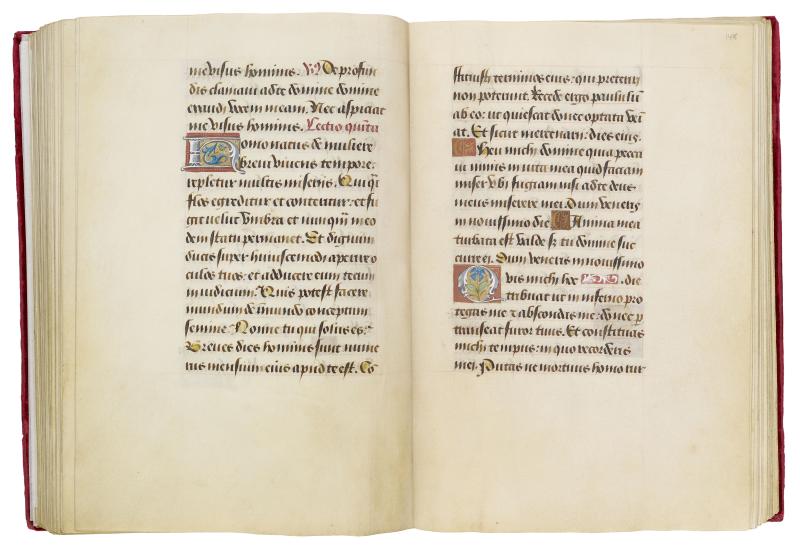 me visus hominis. V De profun
dis clamavi ad te domine domine
exaudi vocem meam. Nec aspiciat
me visus hominis. Lectio quinta
Homo natus de muliere
brevi vivens tempore:
repletur multis miseriis. Qui q̄i
flos egreditur et conteritur: et fu
git velut umbra et nunq̄m in eo
dem statu permanet. Et dignum
ducis super huiuscemodi aperire o
culos tuos: et adducere eum tecum
in iudicium. Quis potest facere
mundum de īmundo conceptum
semine: Nonne tu qui solus es:
Breves dies hominis sunt nume
rus mensium eius apud te est. Co
148
stituisti terminos eius: qui preteriri
non poterunt. Recede ergo paululū
ab eo: ut quiescat donec optata veni
at. Et sicut mercenarii: dies eius.
Heu michi domine quia pecca
vi nimis in vita mea quid faciam
miser ubi fugiam nisi ad te deus
meus miserere mei. Dum veneris
in novissimo die Anima mea
turbata est valde sz tu domine suc
curre ei. Dum veneris in novissimo
Quis michi hoc die
tribuat ut in inferno pro
tegas me z abscondas me: donec p
transeat furor tuus. Et constituas
michi tempus: in quo recorderis
mei. Putas ne mortuus homo rur